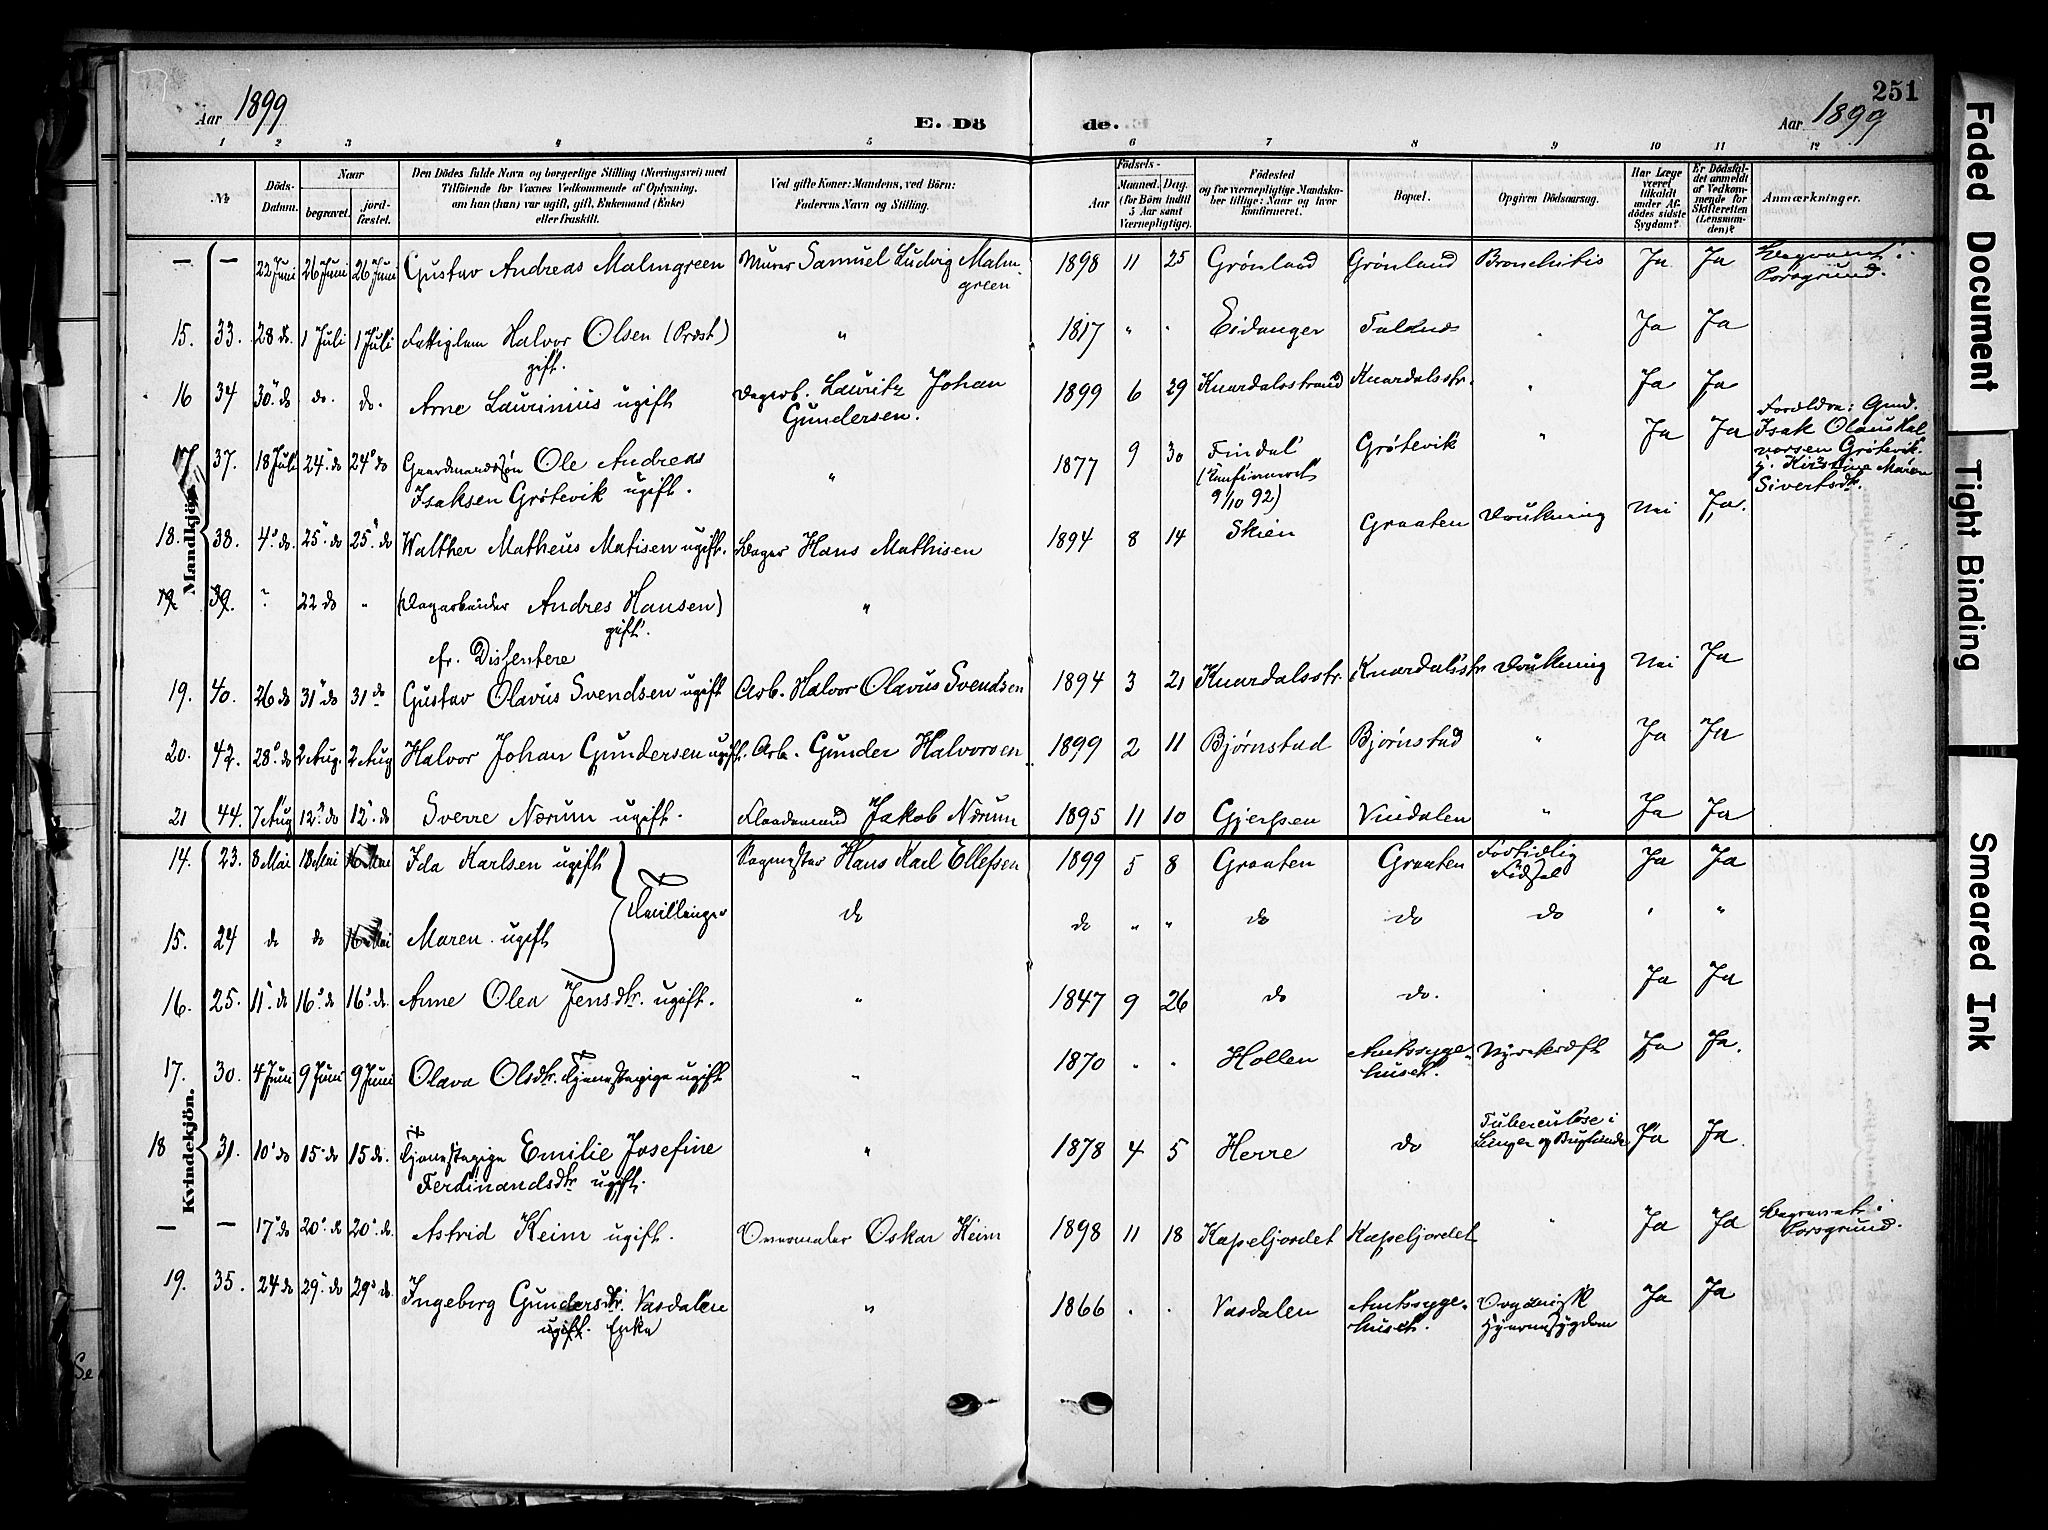 251
Aar 1899
E. Dö
de.
Aar 1899
1 2 3 4 5 6 7 8 9 10 11 12
№
Döds-Datum.
Naar
begravet.
jord-fæstet.
Den Dödes fulde Navn og borgerlige Stilling (Næringsvei) med
Tilföiende for Voxnes Vedkommende af Oplysning,
om han (hun) var ugift, gift, Enkemand (Enke)
eller fraskilt.
Ved gifte Koner: Mandens, ved Börn:
Faderens Navn og Stilling.
Aar
Födsels-
Maaned. Dag.
(for Börn indtil
5 Aar samt
Værnepligtige).
Födested
og for værnepligtige Mandska-
ber tillige: Naar og hvor
konfirmeret.
Bopæl.
Opgiven Dödsaarsag.
Har Læge
været
tilkaldt
under Af-
dödes sidste
Sygdom?
Er Dödsfal-
det anmeldt
af Vedkom-
mende for
Skifteretten
(Lensman-
den)?
Anmærkninger.
Mandkjön.
— — 22 Juni 26 Juni 26 Juni Gustav Andreas Malmgreen Murer Samuel Ludvig Malm- 1898 11 25 Grønland Grønland Bronchitis Ja Ja Begravet i
green Porsgrund.
15. 33. 28 do. 1 Juli 1 Juli Fattiglem Halvor Olsen (Præst) " 1817 " " Eidanger Falknes " Ja Ja
gift.
16 34 30 do do. do. Arne Laurinius ugift Dagarb. Lauritz Johan 1899 6 29 Knardalsstrand Knardalsstr. " Ja Ja
Gundersen.
17 37. 18 Juli 24 do 24 do Gaardmandssøn Ole Andreas " 1877 9 30 Findal Grøtevik " Ja Ja Forældre: Gmd.
Isaksen Grøtevik ugift. (Konfirmeret Isak Olaus Hal
9/10 92) vorsen Grøtevik
Kirstine Maren
Sivertsdtr.
18. 38. 4 do. 25 do 25 do Walther Matheus Matisen ugift. Bager Hans Mathisen 1894 8 14 Skien Graaten Drukning Nei Ja.
19 39. " 22 do " (Dagarbeider Andres Hansen) "
gift.
fr. Dissentere
19. 40. 26 do 31 do 31 do Gustav Olavus Svendsen ugift Arb. Halvor Olavus Svendsen 1894 3 21 Knardalsstr. Knardalsstr Drukning Nei Ja
20. 42. 28 do 2 Aug. 2 Aug Halvor Johan Gundersen ugift. Arb. Gunder Halvorsen 1899 2 11 Bjørnstad Bjørnstad " Ja Ja
21 44. 7 Aug 12 do 12 do Sverre Nærum ugift. Jakob Nærum 1895 11 10 Gjerpen Vindalen " Ja Ja
Kvindekjön.
14. 23. 8 Mai 18 Mai 16 Mai Ida Karlsen ugift Hans Karl Ellefsen 1899 5 8 Graaten Graaten Fortidlig Ja Ja
Fødsel
Tvillinger
15. 24 do do 16 Mai Maren ugift do do " " do do do " "
16. 25. 11 do 16 do 16 do. Anne Olea Jensdtr. ugift. " 1847 9 26 do do. " Ja Ja
17. 30. 4 Juni 9 Juni 9 Juni Olava Olsdtr. Tjenestepige ugift " 1870 " " Hollen Amtssyge- Nyrekræft Ja Ja.
huset.
18 31. 10 do 15 do 15 do. Tjenestepige Emilie Josefine " 1878 4 5 Herre do Tuberculose i Ja Ja
Ferdinandsdtr ugift. Lunger og Bughinde
— — 17 do 20 do 20 do. Astrid Keim ugift. Ovnsmaler Oskar Keim 1898 11 18 Kapeljordet Kapeljordet " Ja Ja Begravet i
Porsgrund.
19. 35. 24 do 29 do 29 do. Ingeborg Gundersdtr. Vasdalen " 1866 " " Vasdalen Amtssyge- Organisk Ja Ja
ugift. Enke huset. Hjernesygdom
Se
Faded Document
Tight Binding
Smeared Ink